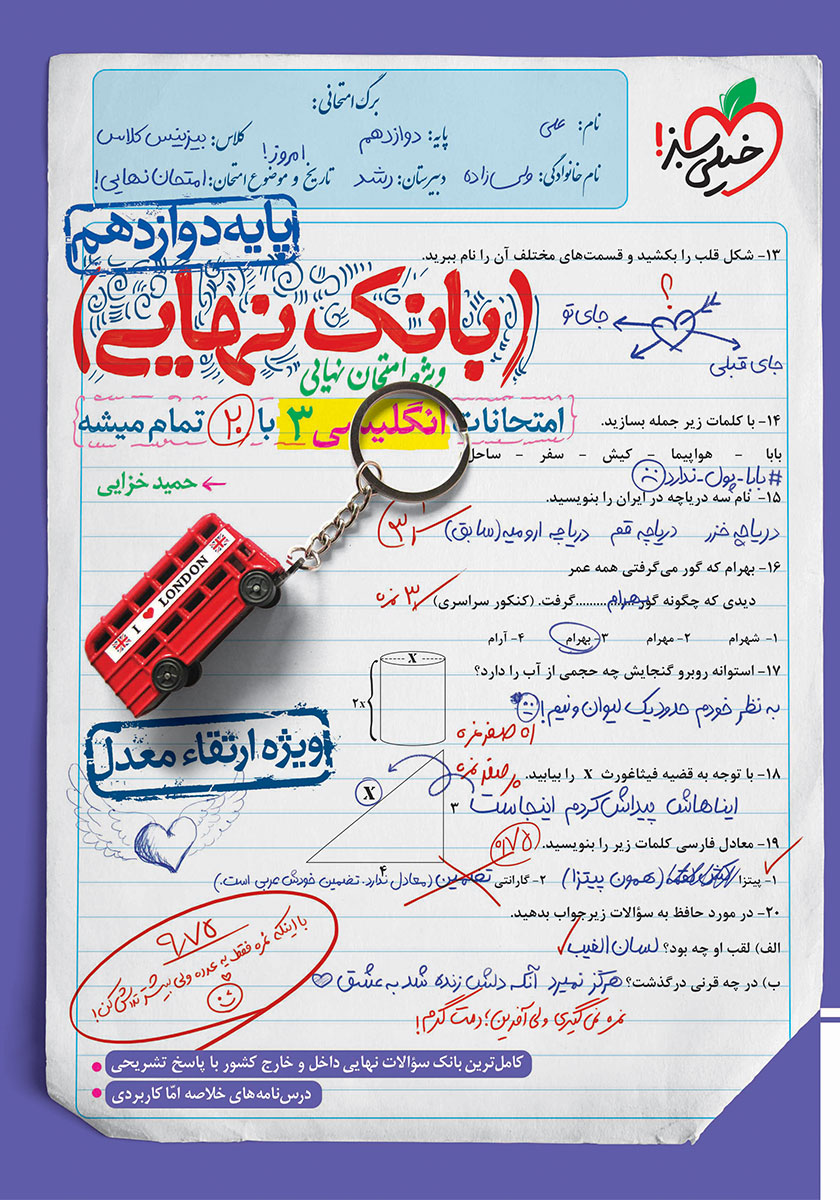 برگ امتحانی:
نام: علی
پایه: دوازدهم
کلاس: بیزینس کلاس
نام خانوادگی: ولی‌زاده
دبیرستان: رشد
تاریخ و موضوع امتحان: امروز! امتحان نهایی!
خیلی سبز!
پایه دوازدهم
۱۳- شکل قلب را بکشید و قسمت‌های مختلف آن را نام ببرید.
؟
جای تو
جای قبلی
(بانک نهایی)
ویژه امتحان نهایی
امتحانات انگلیسی ۳ با ۲۰ تمام میشه
حمید خزایی
۱۴- با کلمات زیر جمله بسازید.
بابا - هواپیما - کیش - سفر - ساحل
#بابا-پول-ندارد
۱۵- نام سه دریاچه در ایران را بنویسید.
دریاچه خزر دریاچه قم دریاچه ارومیه (سابق)
۱۶- بهرام که گور می‌گرفتی همه عمر
دیدی که چگونه گور بهرام.......... گرفت. (کنکور سراسری)
۱- شهرام ۲- مهرام ۳- بهرام ۴- آرام
۱۷- استوانه روبرو گنجایش چه حجمی از آب را دارد؟
X
۲x
به نظر خودم حدود یک لیوان و نیم!
اه صفر نمره
I ❤ LONDON
ویژه ارتقاء معدل
۱۸- با توجه به قضیه فیثاغورث X را بیابید.
صفر نمره
ایناهاش پیداش کردم اینجاست
X
۳
۴
۱۹- معادل فارسی کلمات زیر را بنویسید.
۰/۷۵
۱- پیتزا (همون پیتزا) ۲- گارانتی تضمین (معادل ندارد. تضمین خودش عربی است.)
۲۰- در مورد حافظ به سؤالات زیر جواب بدهید.
الف) لقب او چه بود؟ لسان الغیب
ب) در چه قرنی درگذشت؟ هرگز نمیرد آنکه دلش زنده شد به عشق
نمره نمی‌گیری ولی آفرین؛ دمت گرم!
۹/۷۵
با اینکه نمره فقط یه عدده ولی بیشتر تلاش کن!
کامل‌ترین بانک سؤالات نهایی داخل و خارج کشور با پاسخ تشریحی
درس‌نامه‌های خلاصه امّا کاربردی